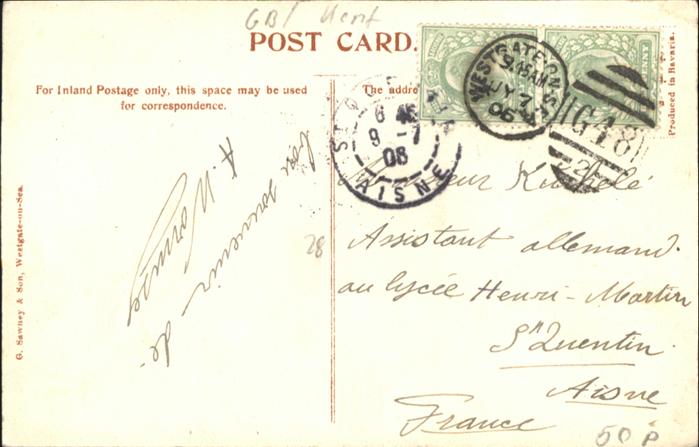 GB / Kent
POST CARD.
For Inland Postage only, this space may be used
for correspondence.
The addre
Produced in Bavaria.
WESTGATE-ON-SEA
9.15AM
JY 7
06
G48
2
ST QUENTIN
9 - 7
06
AISNE
Bon souvenir de
A.
28
G. Sawney & Son, Westgate-on-Sea.
Monsieur
Assistant allemand.
au lycée Henri-Martin
St Quentin.
Aisne
France
50 P